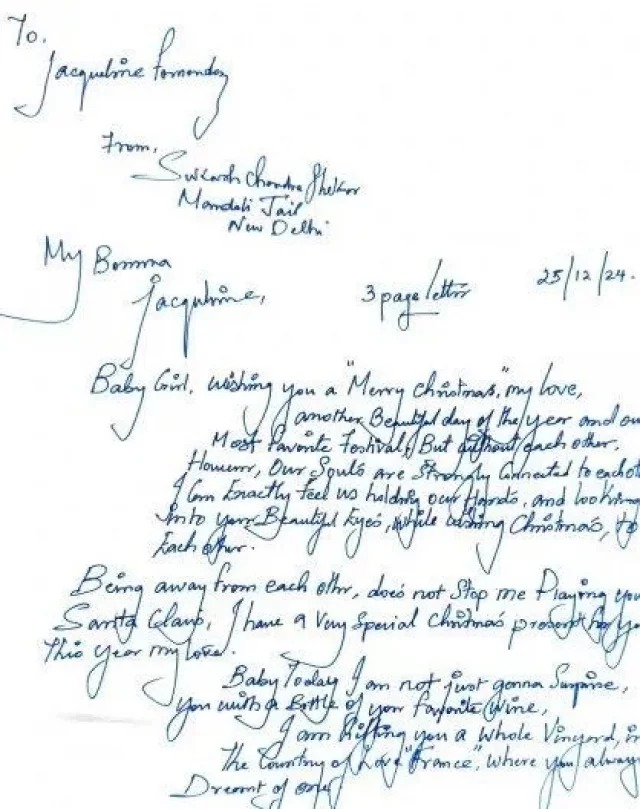 To.
Jacqueline Fernandez
From,
Sukash Chandra Shekar
Mandoli Jail
New Delhi
My Bomma
Jacqueline,
3 page letter
25/12/24.
Baby Girl, wishing you a "Merry Christmas," my love,
another Beautiful day of the year and ou
Most Favorite Festival, But without each other,
However, Our Souls are Strongly Connected to each ot
I Can Exactly Feel us holding our Hands, and looking
into your Beautiful Eyes, while wishing Christmas, to
Each other.
Being away from each othr, does not Stop me Playing you
Santa Claus, I have a Very Special Christmas present for yo
This year my love.
Baby Today I am not just gonna Surprise,
you with a Bottle of your favorite Wine,
I am Gifting you a whole Vinyard, in
The Country of Love "France", where you always
Dreamt of one